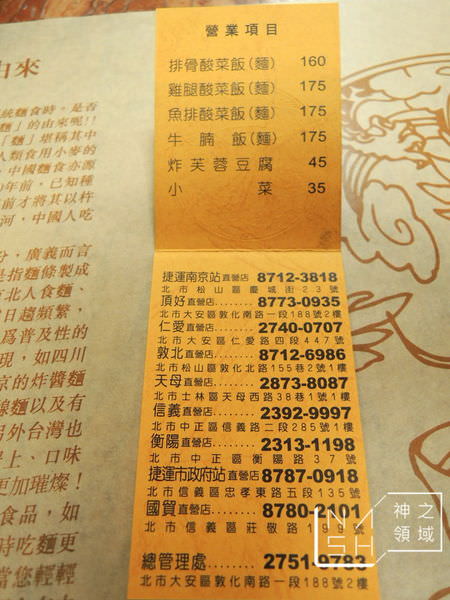 營業項目
排骨酸菜飯(麵) 160
雞腿酸菜飯(麵) 175
魚排酸菜飯(麵) 175
牛腩飯(麵) 175
炸芙蓉豆腐 45
小菜 35
捷運南京站直營店 8712-3818
北市松山區慶城街23號
頂好直營店........ 8773-0935
北市大安區敦化南路一段188號2樓
仁愛直營店........ 2740-0707
北市大安區仁愛路四段447號
敦北直營店........ 8712-6986
北市松山區敦化北路155巷2號1樓
天母直營店........ 2873-8087
北市士林區天母西路38巷1號1樓
信義直營店........ 2392-9997
北市中正區信義路二段285號1樓
衡陽直營店........ 2313-1198
北市中正區衡陽路37號
捷運市政府站直營店 8787-0918
北市信義區忠孝東路五段135號
國貿直營店........ 8780-2101
北市信義區莊敬路199號
總管理處........ 2751-9783
北市大安區敦化南路一段188號2樓
由來
統麵食時，是否
麵」的由來呢!!
「麵」堪稱其中
人類食用小麥的
中國麵食亦源
年前，已知種
前才將其以杵
河，中國人吃
分，廣義而言
是指麵條製成
北人食麵、
日趨頻繁，
爲普及性的
現，如四川
京的炸醬麵
線麵以及有
另外台灣也
上、口味
更加璀燦！
食品，如
時吃麵更
當您輕輕
神之領域